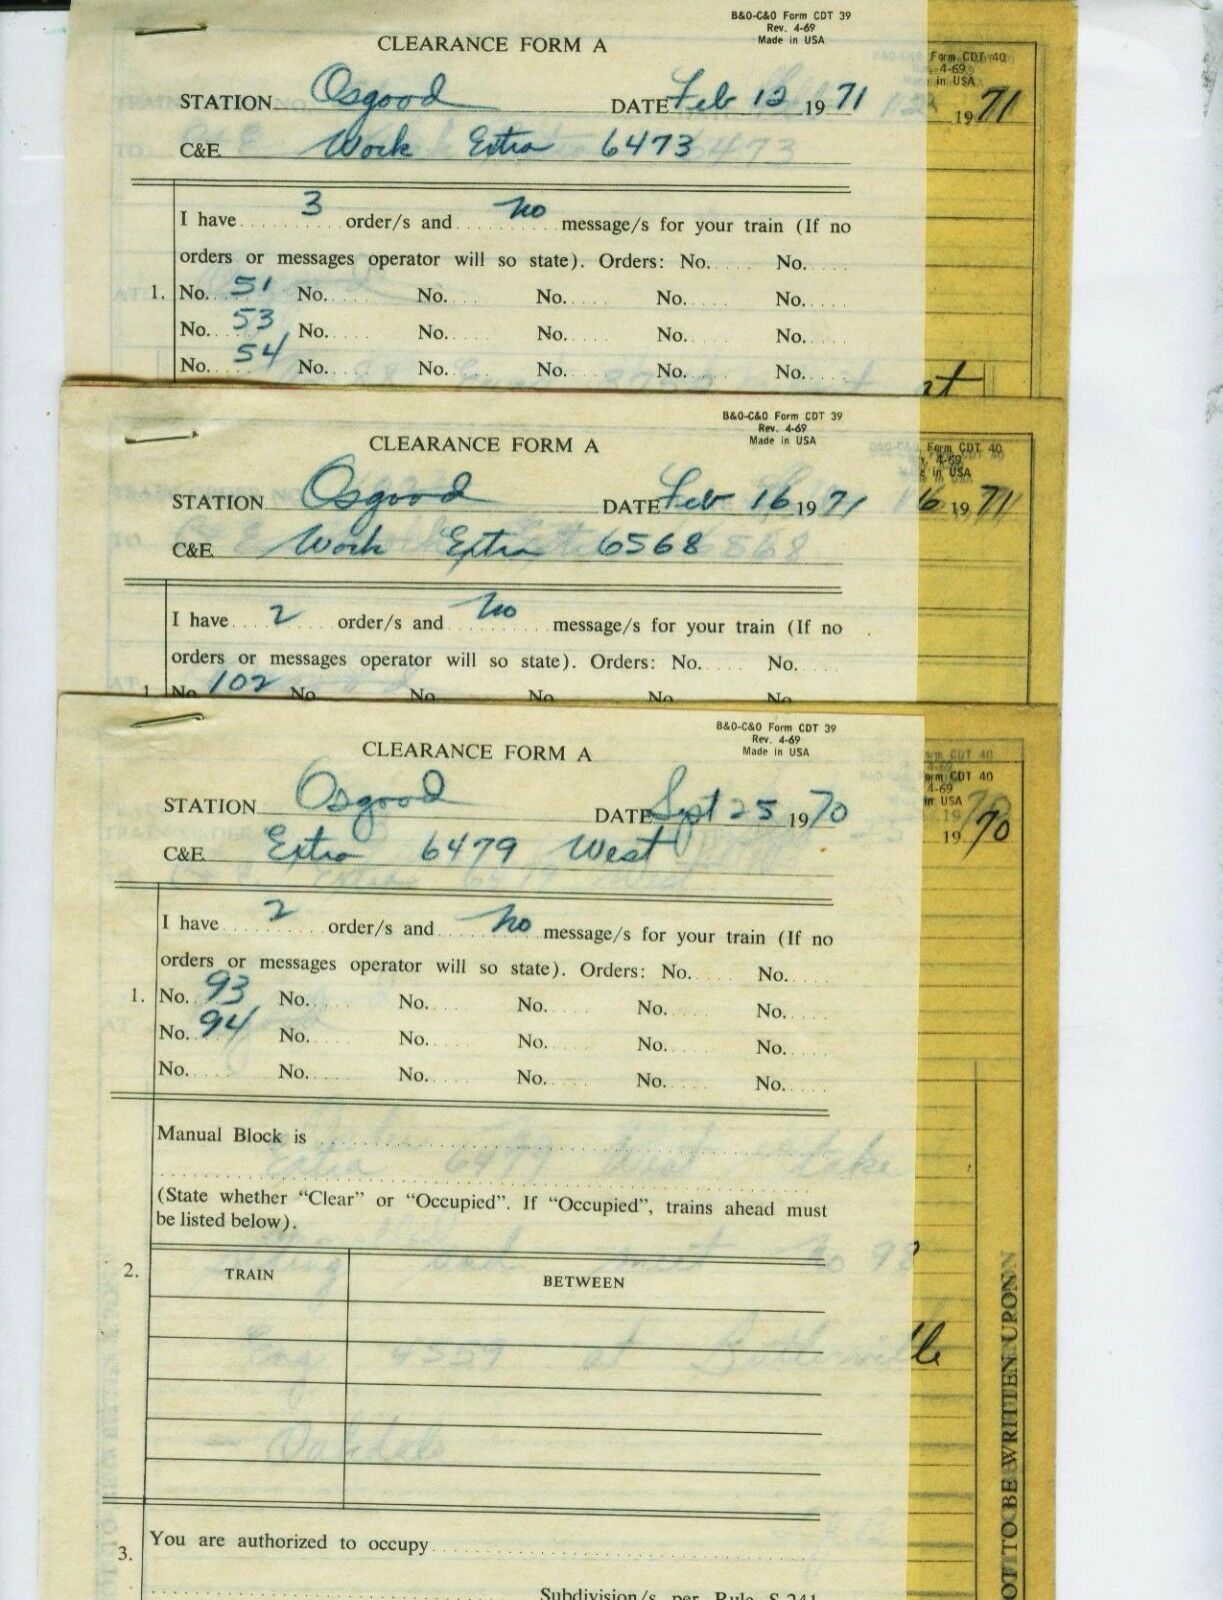 B&O-C&O Form CDT 39
Rev. 4-69
Made in USA
CLEARANCE FORM A
Form CDT 40
4-69
in USA
STATION Osgood DATE Feb 12 19 71
19 71
C&E. Work Extra 6473
I have 3 order/s and no message/s for your train (If no
orders or messages operator will so state). Orders: No. No.
1. No. 51 No. No. No. No. No.
No. 53 No. No. No. No. No.
No. 54 No. No. No. No. No.
B&O-C&O Form CDT 39
Rev. 4-69
Made in USA
CLEARANCE FORM A
Form CDT 40
4-69
in USA
STATION Osgood DATE Feb 16 19 71
16 19 71
C&E. Work Extra 6568
I have 2 order/s and no message/s for your train (If no
orders or messages operator will so state). Orders: No. No.
1. No. 102 No. No. No. No. No.
B&O-C&O Form CDT 39
Rev. 4-69
Made in USA
CLEARANCE FORM A
CDT 40
4-69
in USA
STATION Osgood DATE Sept 25 19 70
19 70
C&E. Extra 6479 West
I have 2 order/s and no message/s for your train (If no
orders or messages operator will so state). Orders: No. No.
1. No. 93 No. No. No. No. No.
No. 94 No. No. No. No. No.
No. No. No. No. No. No.
Manual Block is
Extra 6479 West take
(State whether “Clear” or “Occupied”. If “Occupied”, trains ahead must
be listed below).
meet No 98
2. TRAIN BETWEEN
Eng at
3. You are authorized to occupy
Subdivision/s per Rule S-241
TO BE WRITTEN UPON